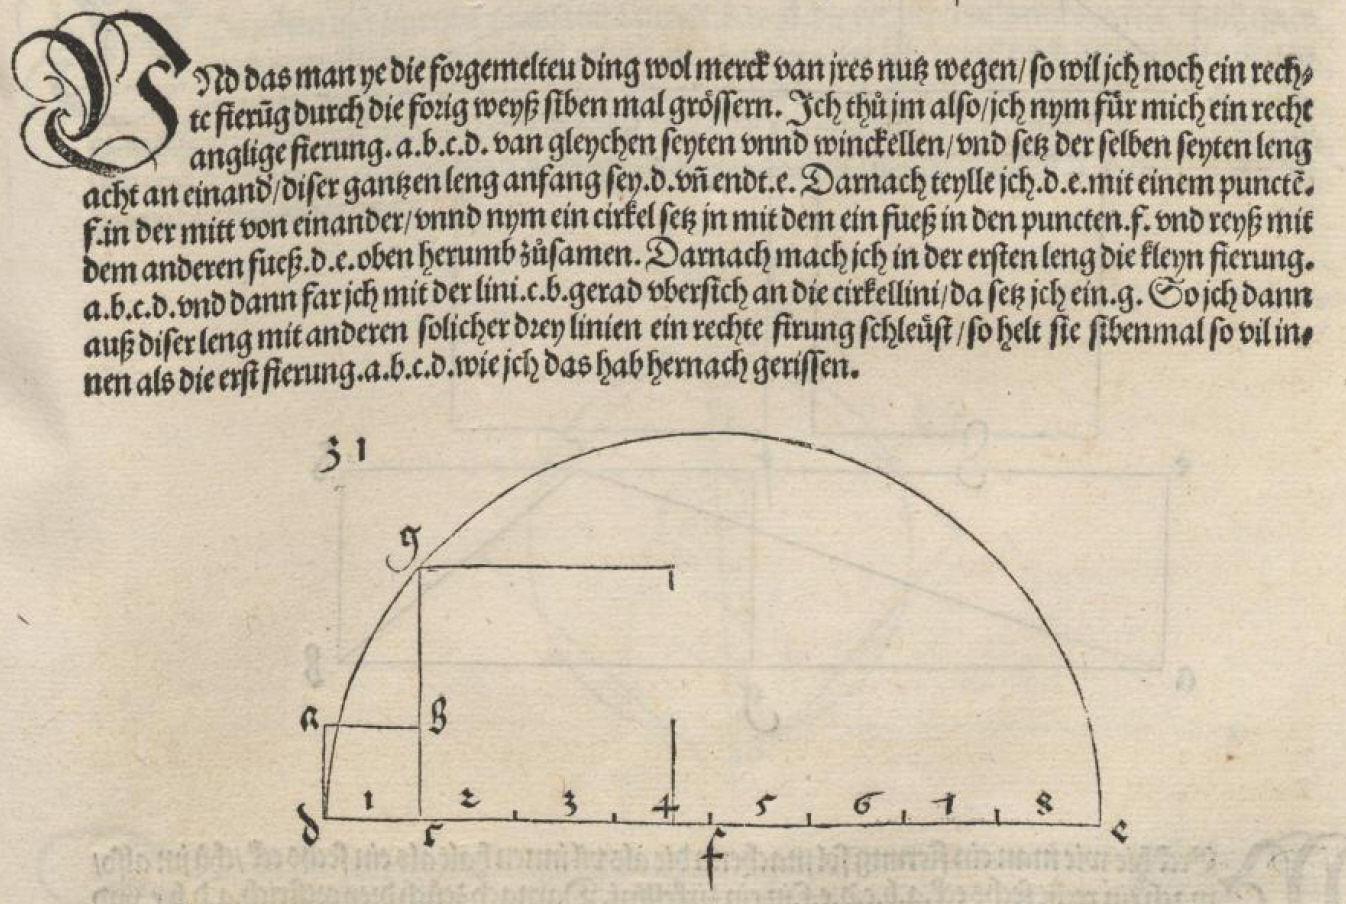 VNd das man ye die forgemelteu ding wol merck van jres nutz wegen/ so wil jch noch ein rech⸗
te fierũg durch die forig weyß siben mal grössern. Jch thů jm also/ jch nym für mich ein recht
anglige fierung. a.b.c.d. van gleychen seyten vnnd winckellen/ vnd setz der selben seyten leng
acht an einand/ diser gantzen leng anfang sey.d.vñ endt.e. Darnach teylle jch.d.e.mit einem punctẽ.
f.in der mitt von einander/ vnnd nym ein cirkel setz jn mit dem ein fueß in den puncten.f. vnd reyß mit
dem anderen fueß.d.e.oben herumb zůsamen. Darnach mach jch in der ersten leng die kleyn fierung.
a.b.c.d.vnd dann far jch mit der lini.c.b.gerad vbersich an die cirkellini/ da setz jch ein.g. So jch dann
auß diser leng mit anderen solicher drey linien ein rechte firung schleüst/ so helt sie sibenmal so vil in⸗
nen als die erst fierung.a.b.c.d.wie jch das hab hernach gerissen.
31
g
a b
1 2 3 4 5 6 7 8
d c f e